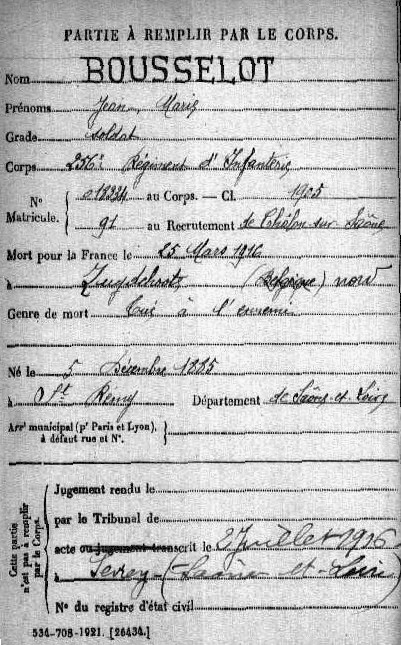 PARTIE À REMPLIR PAR LE CORPS.
Nom BOUSSELOT
Prénoms Jean Marie
Grade Soldat
Corps 256e Régiment d'Infanterie
N° Matricule. 018334 au Corps. — Cl. 1905
91 au Recrutement de Châlon sur Saône
Mort pour la France le 25 Mars 1916
à Zuydchoote (Belgique) nord
Genre de mort Tué à l'ennemi
Né le 5 Décembre 1885
à St Remy Département de Saône-et-Loire
Arrt municipal (pr Paris et Lyon),
à défaut rue et N°.
Cette partie n'est pas à remplir par le Corps.
Jugement rendu le
par le Tribunal de
acte ou jugement transcrit le 2 Juillet 1916
à Sevrey (Saône et Loire)
N° du registre d'état civil
534-708-1921. [26434.]